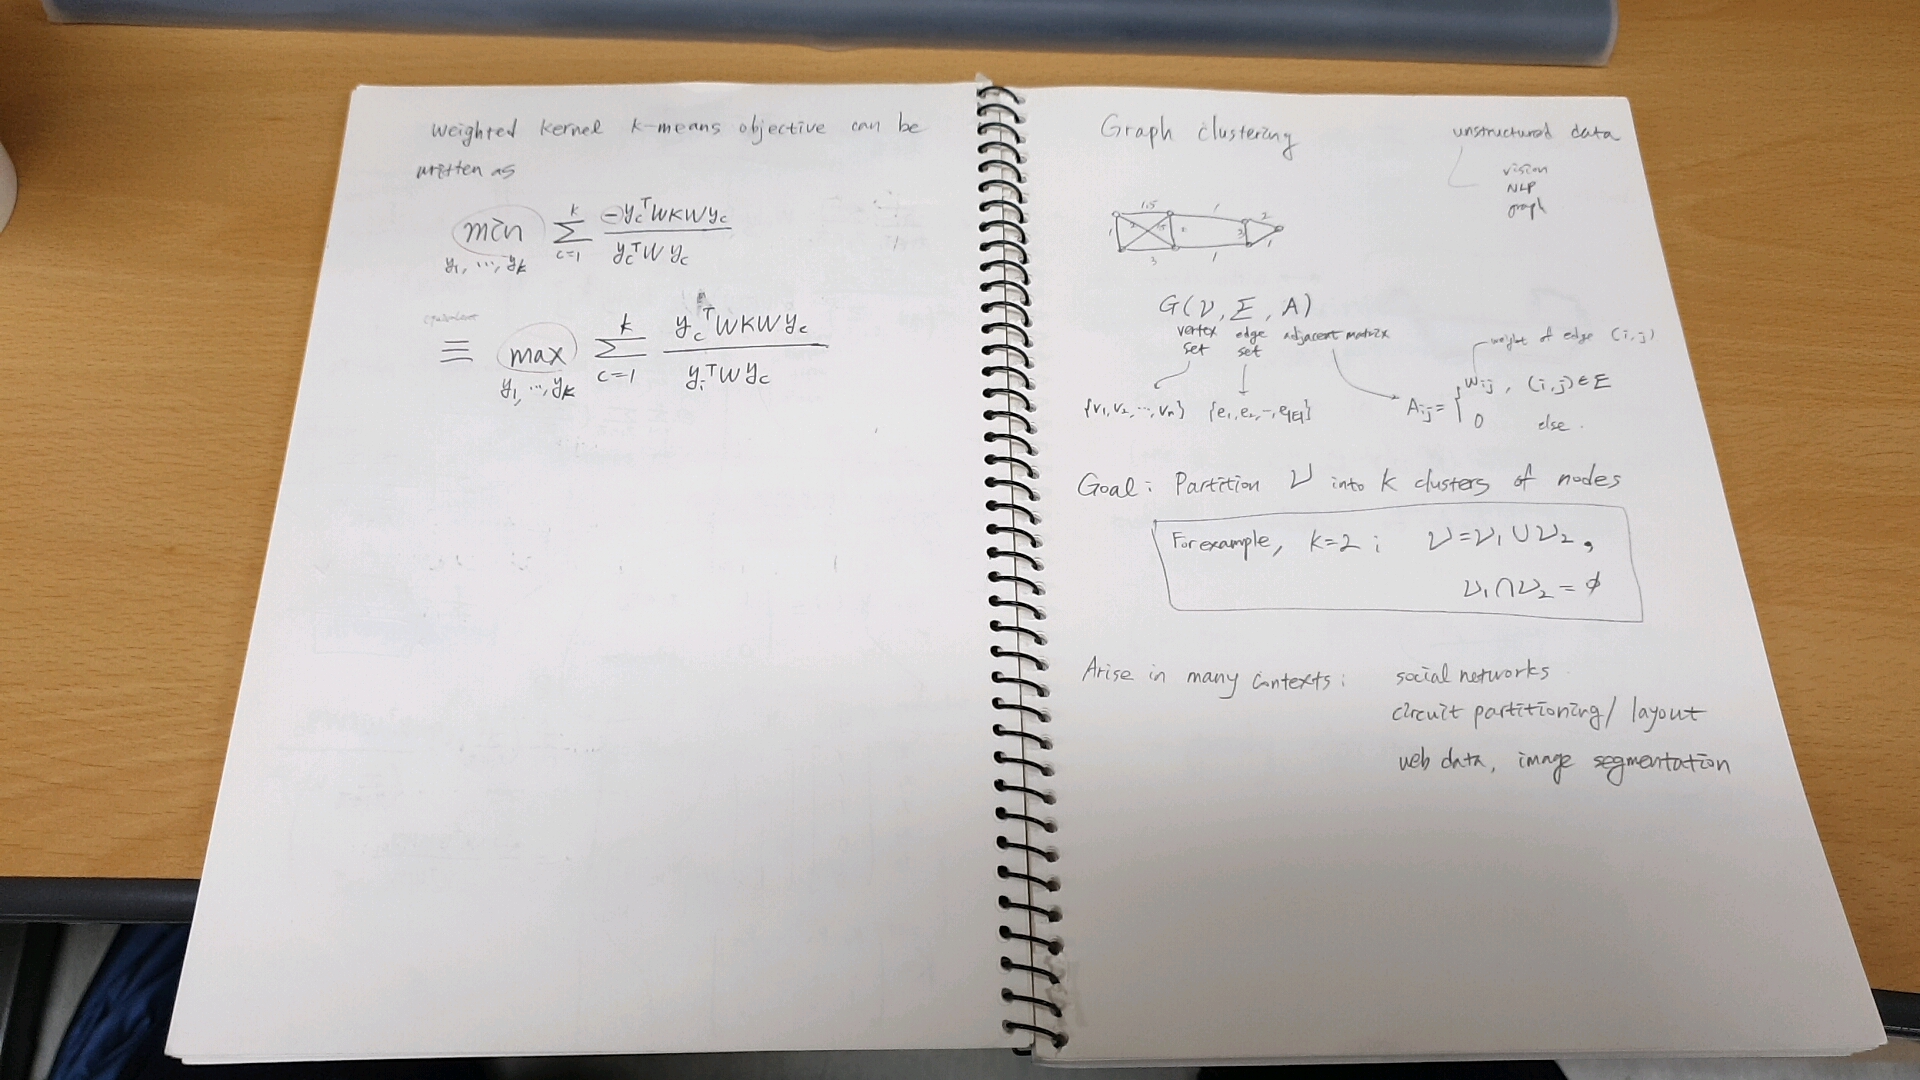 Weighted kernel k-means objective can be
written as
min Σ -y_c^T W K W y_c / y_c^T W y_c
y_1, ..., y_k c=1 k
equivalent
≡ max Σ y_c^T W K W y_c / y_i^T W y_c
y_1, ..., y_k c=1 k
Graph clustering
unstructured data
vision
NLP
graph
1.5 1 2
1 3
3 1 1
G(V, E, A)
vertex set
edge set
adjacent matrix
weight of edge (i,j)
{v_1, v_2, ..., v_n} {e_1, e_2, -, e_|E|}
A_ij = { w_ij, (i,j) ∈ E
0 else.
Goal: Partition V into k clusters of nodes
For example, k=2; V = V_1 ∪ V_2,
V_1 ∩ V_2 = ∅
Arise in many contexts: social networks
circuit partitioning / layout
web data, image segmentation